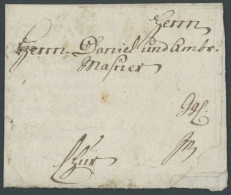 Herrn
Herrn Daniel und Ambr:
Masner
Chur